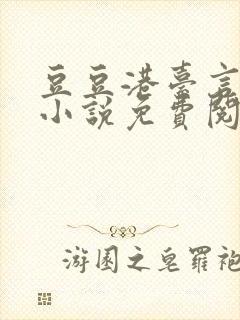 豆豆港臺言
小說免費閱
游園之皂羅袍